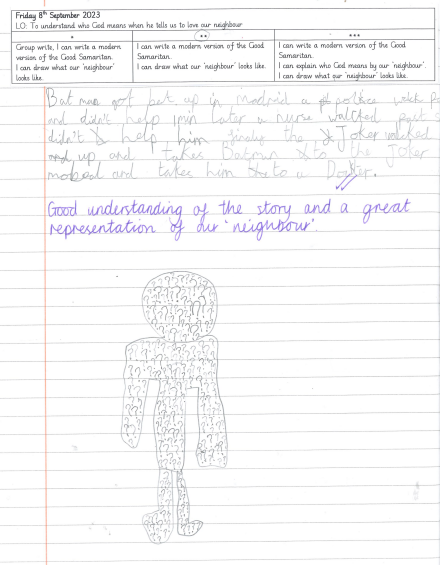 Friday 8th September 2023
LO: To understand who God means when he tells us to love our neighbour
*
**
***
Group write, I can write a modern
version of the Good Samaritan.
I can draw what our 'neighbour'
looks like.
I can write a modern version of the Good
Samaritan.
I can draw what our 'neighbour' looks like.
I can write a modern version of the Good
Samaritan.
I can explain who God means by our 'neighbour'.
I can draw what our 'neighbour' looks like.
Bat man got bet up in madrid a police
and didn't help 1min later a nurse watched past
didn't help him finaly the Joker walked
up and takes Batman to the Joker
mobeal and takes him to a
Good understanding of the story and a great
representation of our 'neighbour'.